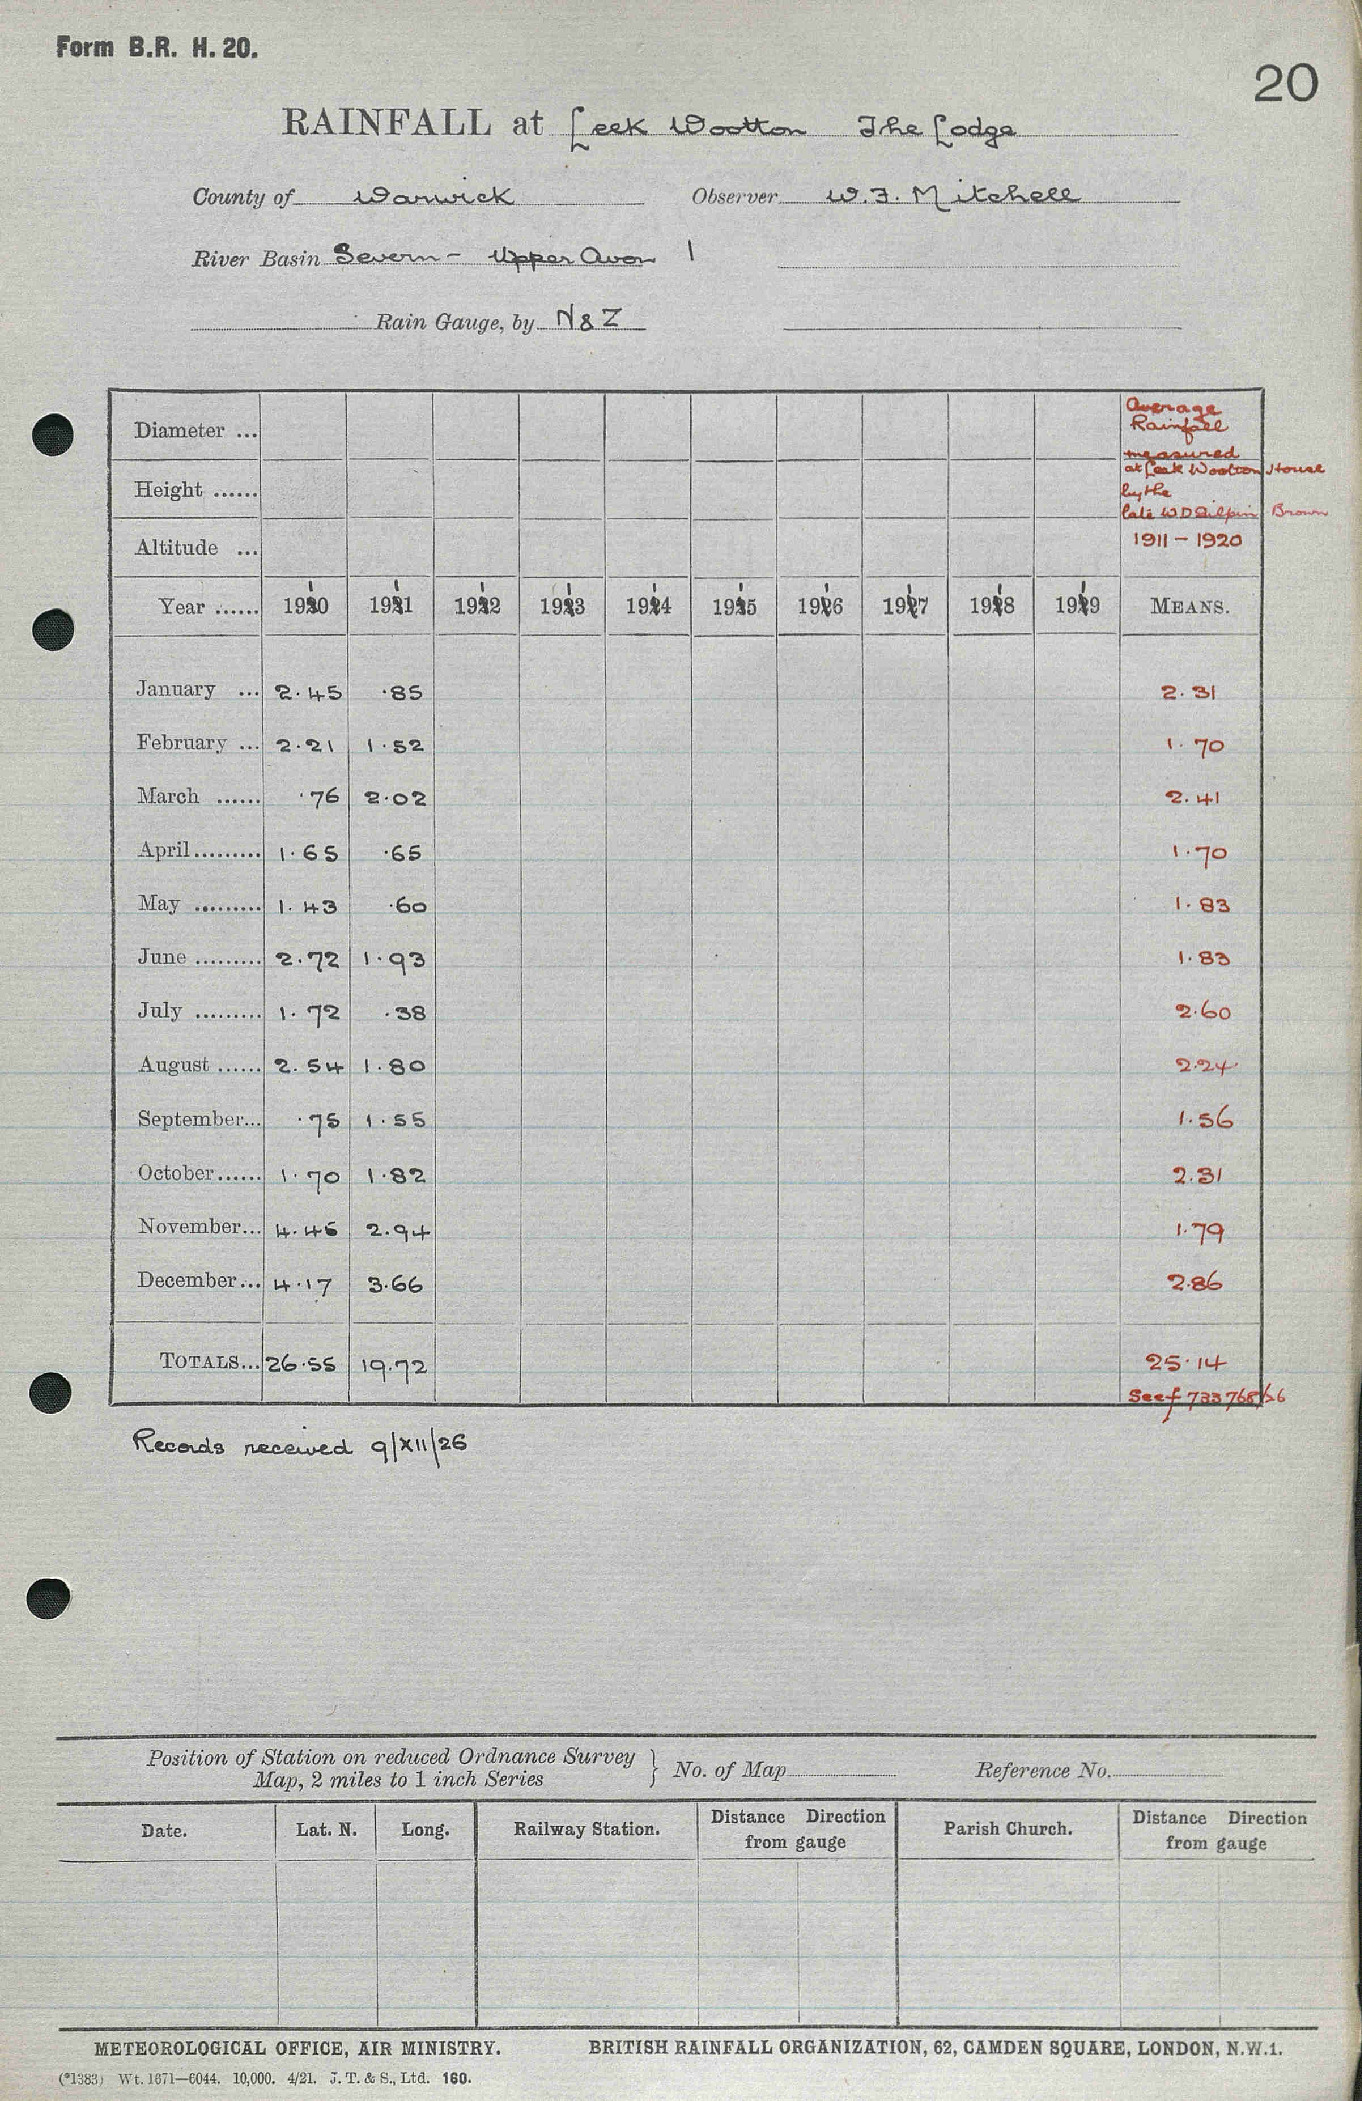 Form B.R. H. 20.
20
RAINFALL at Leek Wootton The Lodge
County of Warwick Observer W. F. Mitchell
River Basin Severn - Upper Avon 1
Rain Gauge, by N & Z
Average
Rainfall
Diameter ...
measured
at Leek Wootton House
Height ......
by the
late W D Gilpin Brown
Altitude ... 1911 - 1920
Year ...... 1910 1911 1912 1913 1914 1915 1916 1917 1918 1919 MEANS.
January ... 2.45 .85 2.31
February ... 2.21 1.52 1.70
March ...... .76 2.02 2.41
April......... 1.65 .65 1.70
May ......... 1.43 .60 1.83
June ......... 2.72 1.93 1.83
July ......... 1.72 .38 2.60
August ...... 2.54 1.80 2.24
September... .75 1.55 1.56
October...... 1.70 1.82 2.31
November... 4.45 2.94 1.79
December... 4.17 3.66 2.86
TOTALS... 26.55 19.72 25.14
See f 733768/26
Records received 9/XII/26
Position of Station on reduced Ordnance Survey
Map, 2 miles to 1 inch Series } No. of Map Reference No.
Date. Lat. N. Long. Railway Station. Distance Direction from gauge Parish Church. Distance Direction from gauge
METEOROLOGICAL OFFICE, AIR MINISTRY. BRITISH RAINFALL ORGANIZATION, 62, CAMDEN SQUARE, LONDON, N.W.1.
(*1383) Wt. 1671—6044. 10,000. 4/21. J. T. & S., Ltd. 160.